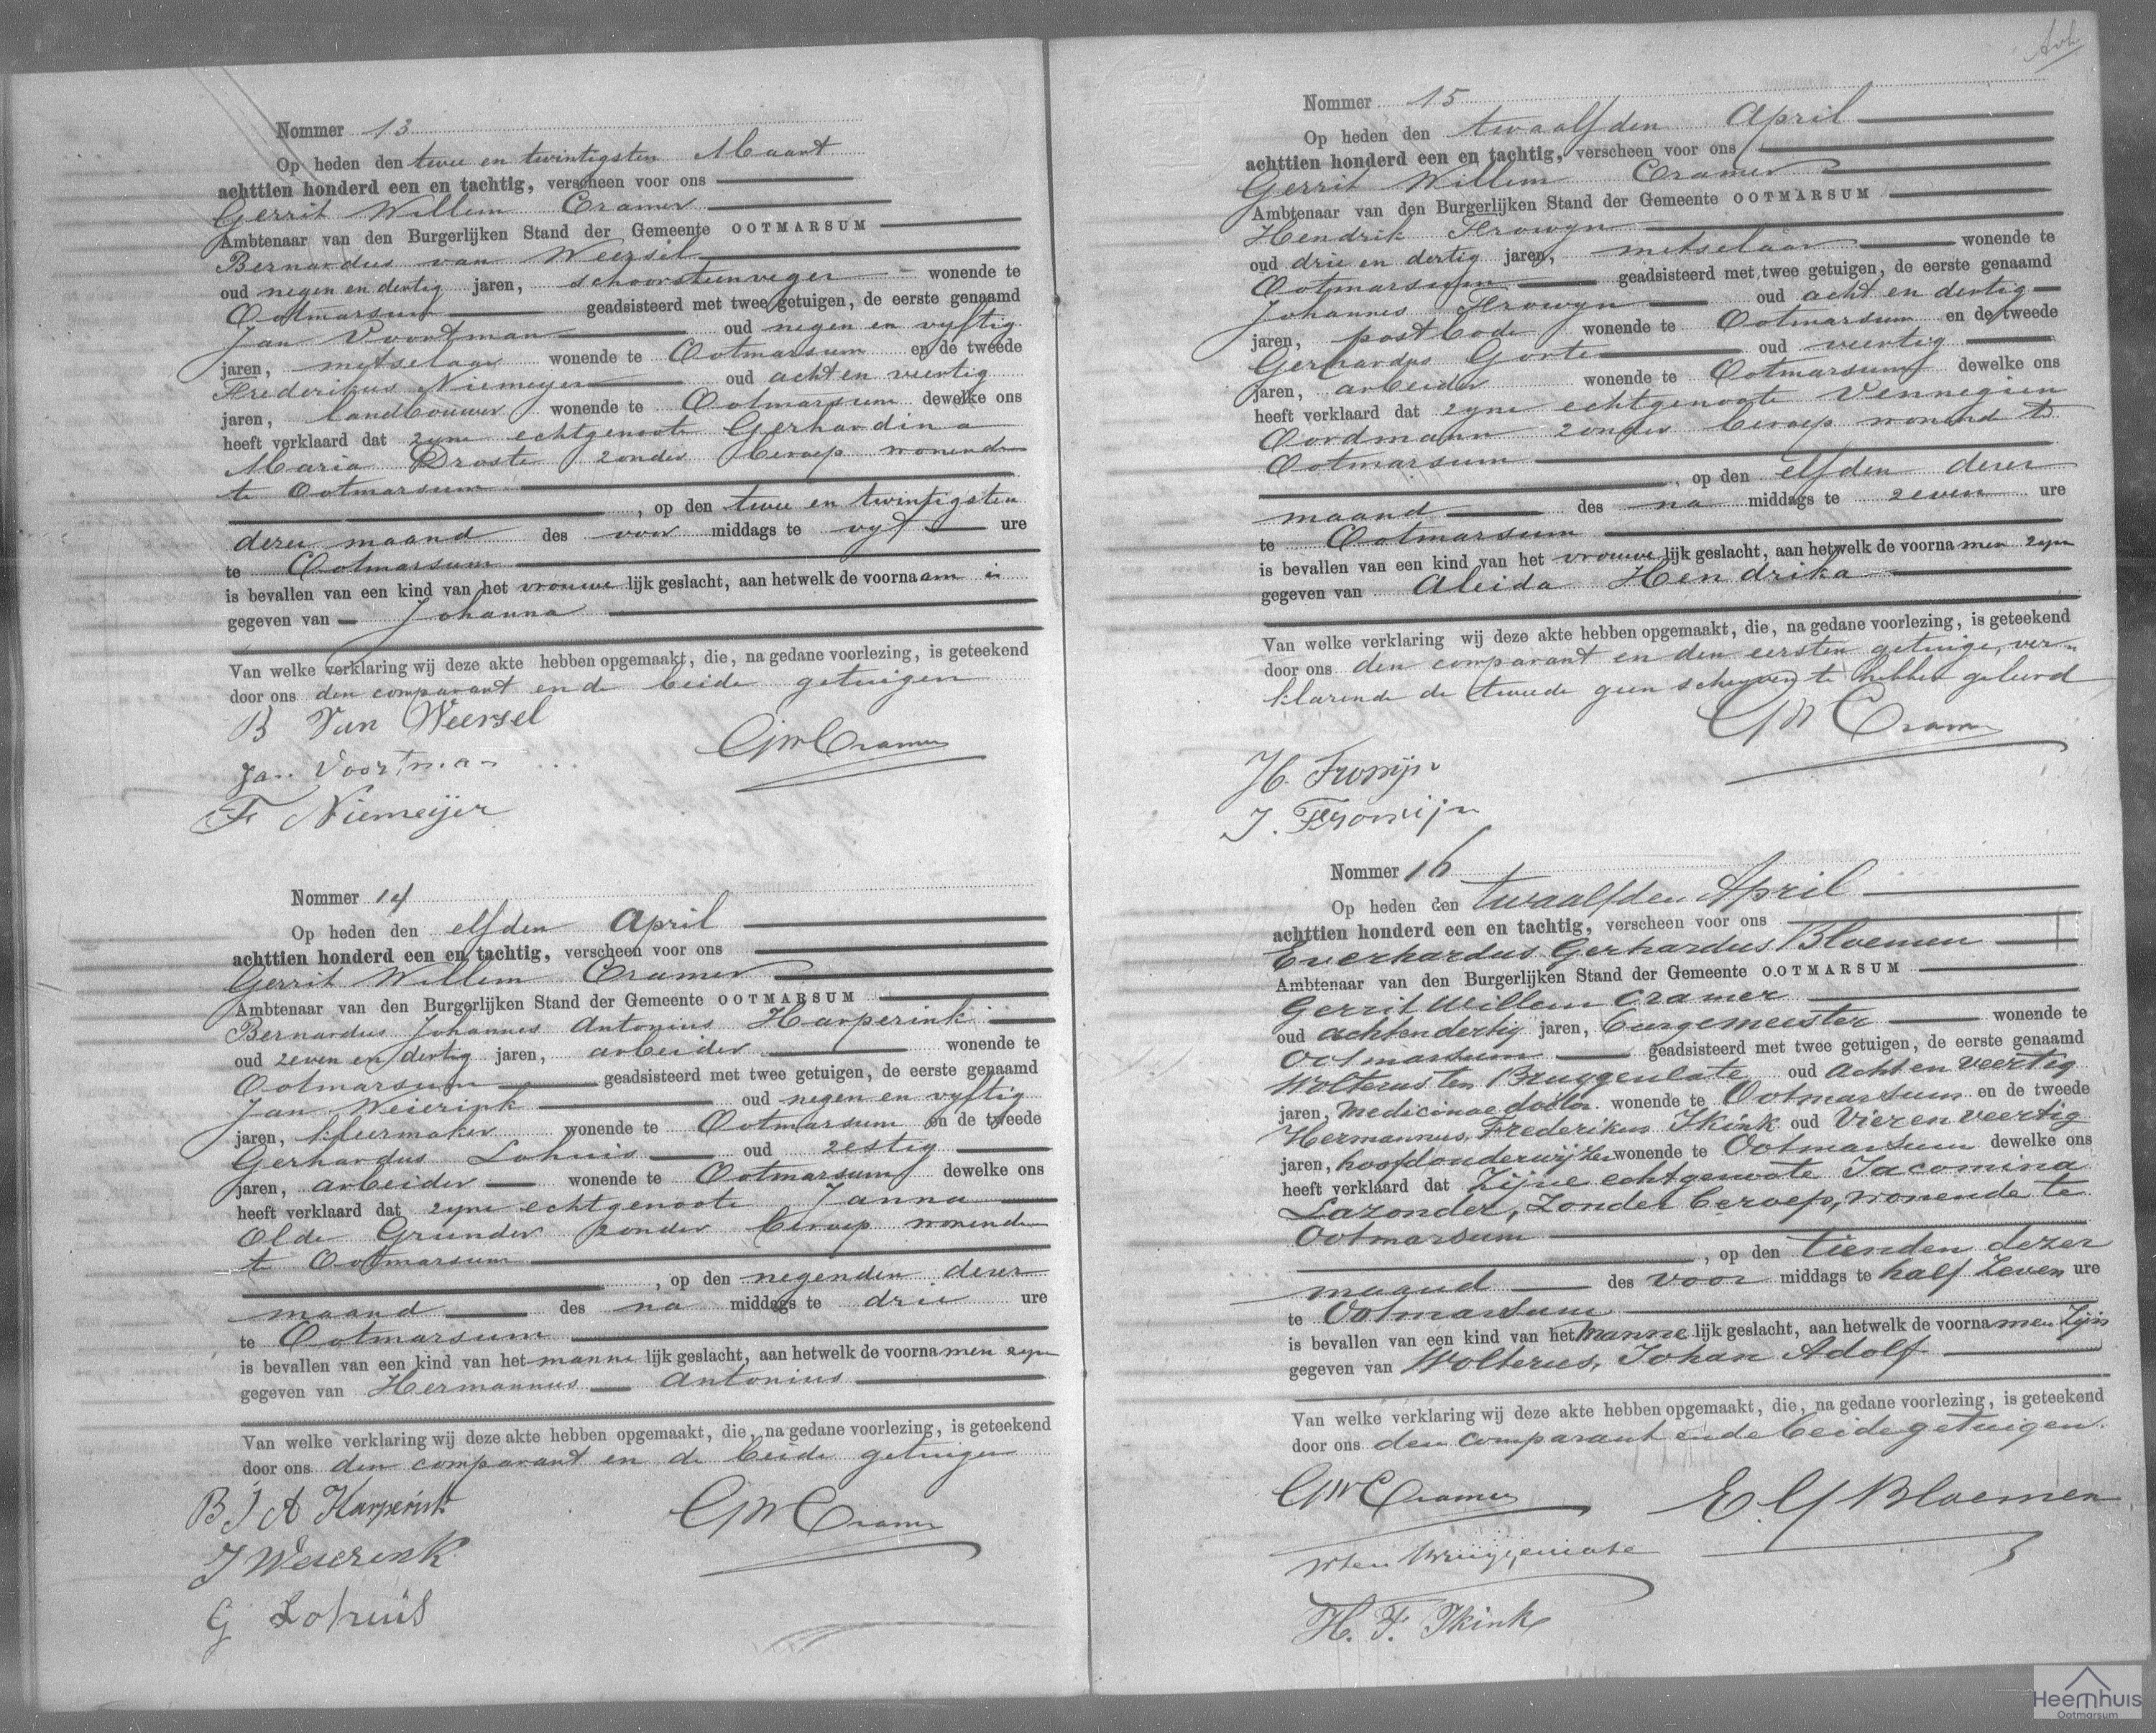 Nommer 13
Op heden den twee en twintigsten Maart
achttien honderd een en tachtig, verscheen voor ons
Gerrit Willem Cramer
Ambtenaar van den Burgerlijken Stand der Gemeente OOTMARSUM
Bernardus van Weersel
oud negen en dertig jaren, schoorsteenveger wonende te
Ootmarsum geadsisteerd met twee getuigen, de eerste genaamd
Jan Voortman oud negen en vyftig
jaren, metselaar wonende te Ootmarsum en de tweede
Frederikus Niemeyer oud acht en veertig
jaren, landbouwer wonende te Ootmarsum dewelke ons
heeft verklaard dat zyne echtgenoote Gerhardina
Maria Droste zonder beroep wonende
te Ootmarsum
, op den twee en twintigsten
dezer maand des voor middags te vyf ure
te Ootmarsum
is bevallen van een kind van het vrouwe lijk geslacht, aan hetwelk de voornaam is
gegeven van Johanna
Van welke verklaring wij deze akte hebben opgemaakt, die, na gedane voorlezing, is geteekend
door ons den comparant en de beide getuigen
B Van Weersel
GWCramer
Jan Voortman
F Niemeijer
Nommer 14
Op heden den elfden April
achttien honderd een en tachtig, verscheen voor ons
Gerrit Willem Cramer
Ambtenaar van den Burgerlijken Stand der Gemeente OOTMARSUM
Bernardus Johannes Antonius Harperink
oud zeven en dertig jaren, arbeider wonende te
Ootmarsum geadsisteerd met twee getuigen, de eerste genaamd
Jan Weierink oud negen en vyftig
jaren, kleermaker wonende te Ootmarsum en de tweede
Gerhardus Lohuis oud zestig
jaren, arbeider wonende te Ootmarsum dewelke ons
heeft verklaard dat zyne echtgenoote Janna
Olde Grunder zonder beroep wonende
te Ootmarsum
, op den negenden dezer
maand des na middags te drie ure
te Ootmarsum
is bevallen van een kind van het manne lijk geslacht, aan hetwelk de voornamen zyn
gegeven van Hermannus Antonius
Van welke verklaring wij deze akte hebben opgemaakt, die, na gedane voorlezing, is geteekend
door ons den comparant en de beide getuigen
B J A Harperink
GWCramer
J Weierink
G Lohuis
Nommer 15
Op heden den twaalfden April
achttien honderd een en tachtig, verscheen voor ons
Gerrit Willem Cramer
Ambtenaar van den Burgerlijken Stand der Gemeente OOTMARSUM
Hendrik Frowyn
oud drie en dertig jaren, metselaar wonende te
Ootmarsum geadsisteerd met twee getuigen, de eerste genaamd
Johannes Frowyn oud acht en dertig
jaren, postbode wonende te Ootmarsum en de tweede
Gerhardus Gorte oud veertig
jaren, arbeider wonende te Ootmarsum dewelke ons
heeft verklaard dat zyne echtgenoote Vennegien
Oordmann zonder beroep wonende te
Ootmarsum
, op den elfden dezer
maand des na middags te zeven ure
te Ootmarsum
is bevallen van een kind van het vrouwe lijk geslacht, aan hetwelk de voornamen zyn
gegeven van Aleida Hendrika
Van welke verklaring wij deze akte hebben opgemaakt, die, na gedane voorlezing, is geteekend
door ons den comparant en den eersten getuige, ver-
klarende de tweede geen schryven te hebben geleerd
GW Cramer
H. Frowijn
J. Frowijn
Nommer 16
Op heden den twaalfden April
achttien honderd een en tachtig, verscheen voor ons
Everhardus Gerhardus Bloemen
Ambtenaar van den Burgerlijken Stand der Gemeente OOTMARSUM
Gerrit Willem Cramer
oud achtendertig jaren, burgemeester wonende te
Ootmarsum geadsisteerd met twee getuigen, de eerste genaamd
Wolterus ten Bruggencate oud acht en veertig
jaren, Medicinae doctor wonende te Ootmarsum en de tweede
Hermannus Frederikus Ikink oud vier en veertig
jaren, hoofdonderwijzer wonende te Ootmarsum dewelke ons
heeft verklaard dat zijne echtgenoote Jacomina
Lazonder, zonder beroep, wonende te
Ootmarsum
, op den tienden dezer
maand des voor middags te half zeven ure
te Ootmarsum
is bevallen van een kind van het manne lijk geslacht, aan hetwelk de voornamen zijn
gegeven van Wolterus, Johan Adolf
Van welke verklaring wij deze akte hebben opgemaakt, die, na gedane voorlezing, is geteekend
door ons den comparant en de beide getuigen.
GWCramer
E. G Bloemen
W ten Bruggencate
H. F. Ikink
Heemhuis
Ootmarsum